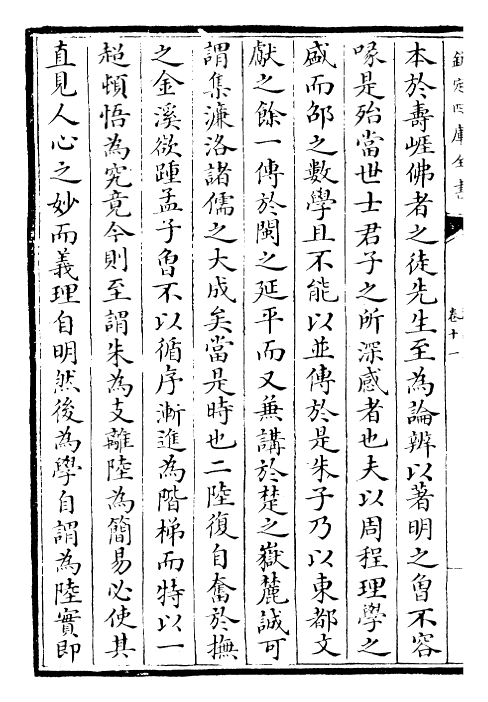 欽定四庫全書
卷十一
本於壽崕佛者之徒先生至為論辨以著明之曽不容
喙是殆當世士君子之所深感者也夫以周程理學之
盛而邵之數學且不能以並傳於是朱子乃以東都文
獻之餘一傳於閩之延平而又兼講於楚之嶽麓誠可
謂集濂洛諸儒之大成矣當是時也二陸復自奮於撫
之金溪欲踵孟子曽不以循序漸進為階梯而特以一
超頓悟為究竟今則至謂朱為支離陸為簡易必使其
直見人心之妙而義理自明然後為學自謂為陸實即